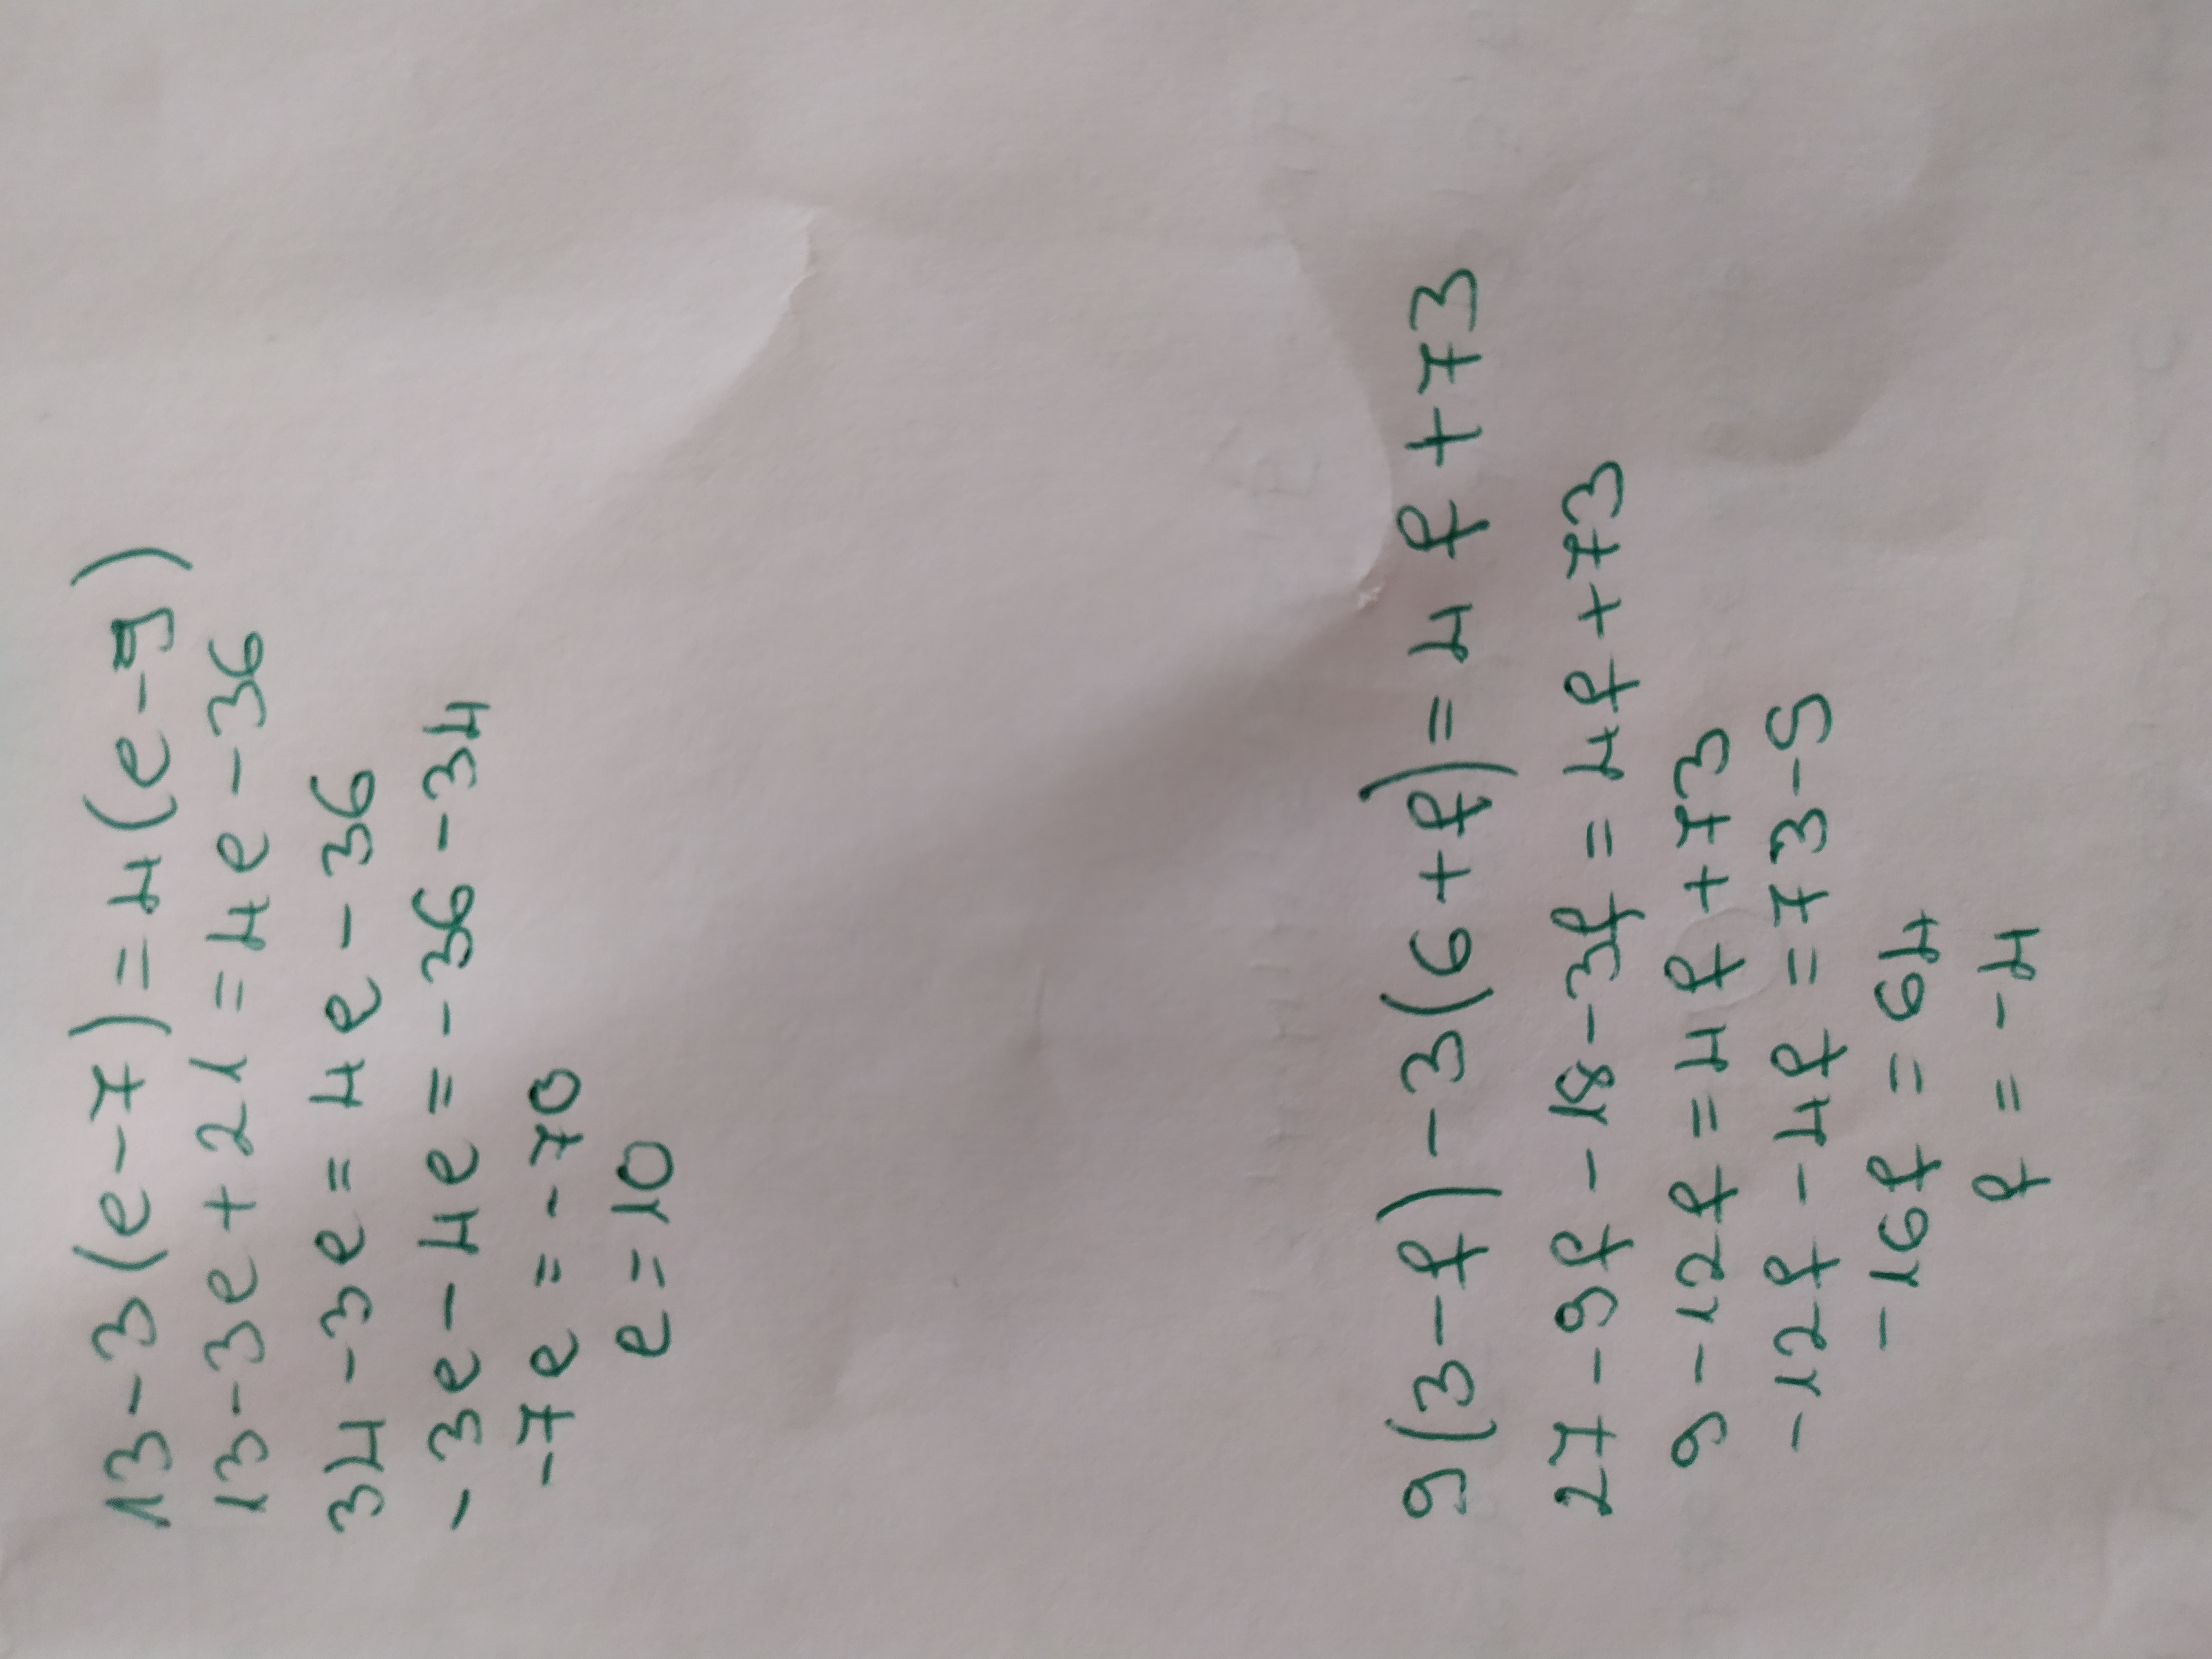 13-3(e-7)=4(e-9)
13-3e+21=4e-36
34-3e=4e-36
-3e-4e=-36-34
-7e=-70
e=10
9(3-f)-3(6+f)=4f+73
27-9f-18-3f=4f+73
9-12f=4f+73
-12f-4f=73-9
-16f=64
f=-4